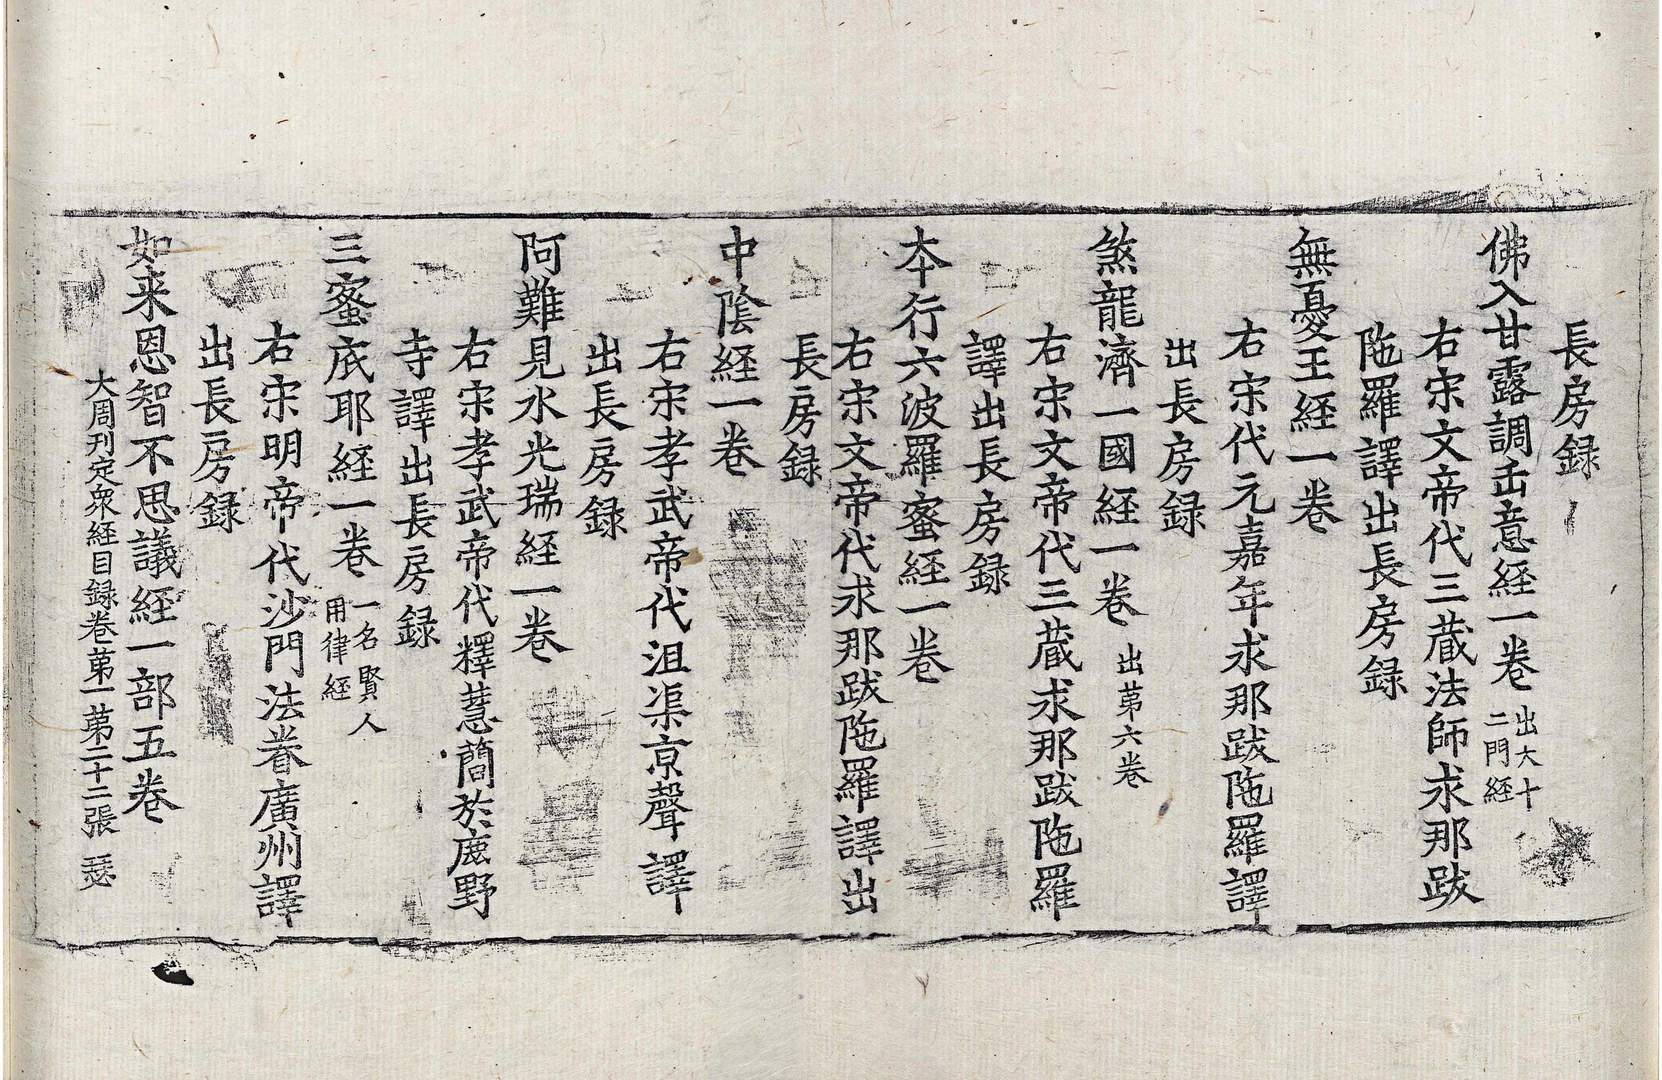 長房録
佛入甘露調正意経一巻 出大十二門経
右宋文帝代三蔵法師求那跋
陁羅譯出長房録
無憂王経一巻
右宋代元嘉年求那跋陁羅譯
出長房録
煞龍濟一國経一巻 出苐六巻
右宋文帝代三蔵求那跋陁羅
譯出長房録
本行六波羅蜜経一巻
右宋文帝代求那跋陁羅譯出
長房録
中陰経一巻
右宋孝武帝代沮渠京聲譯
出長房録
阿難見水光瑞経一巻
右宋孝武帝代釋慧簡於鹿野
寺譯出長房録
三蜜底耶経一巻 一名賢人用律経
右宋明帝代沙門法眷廣州譯
出長房録
如来恩智不思議経一部五巻
大周刊定衆経目録巻苐一苐二十二張 瑟